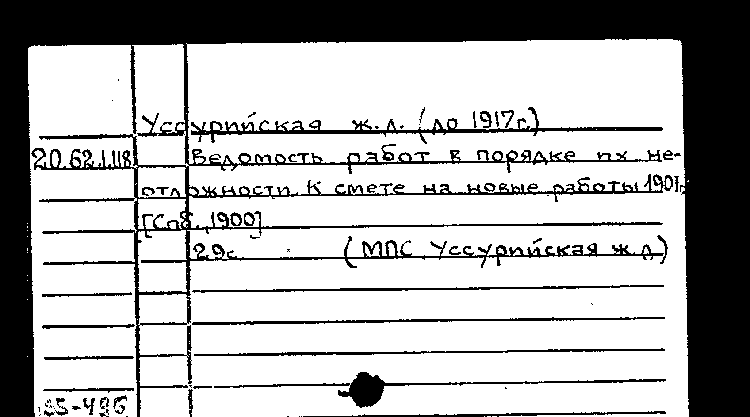 Уссурийская ж.д. (до 1917г.)
20.62.1.118 Ведомость работ в порядке их не-
отложности. К смете на новые работы 1901г.
[Спб., 1900]
29с. (МПС. Уссурийская ж.д.)